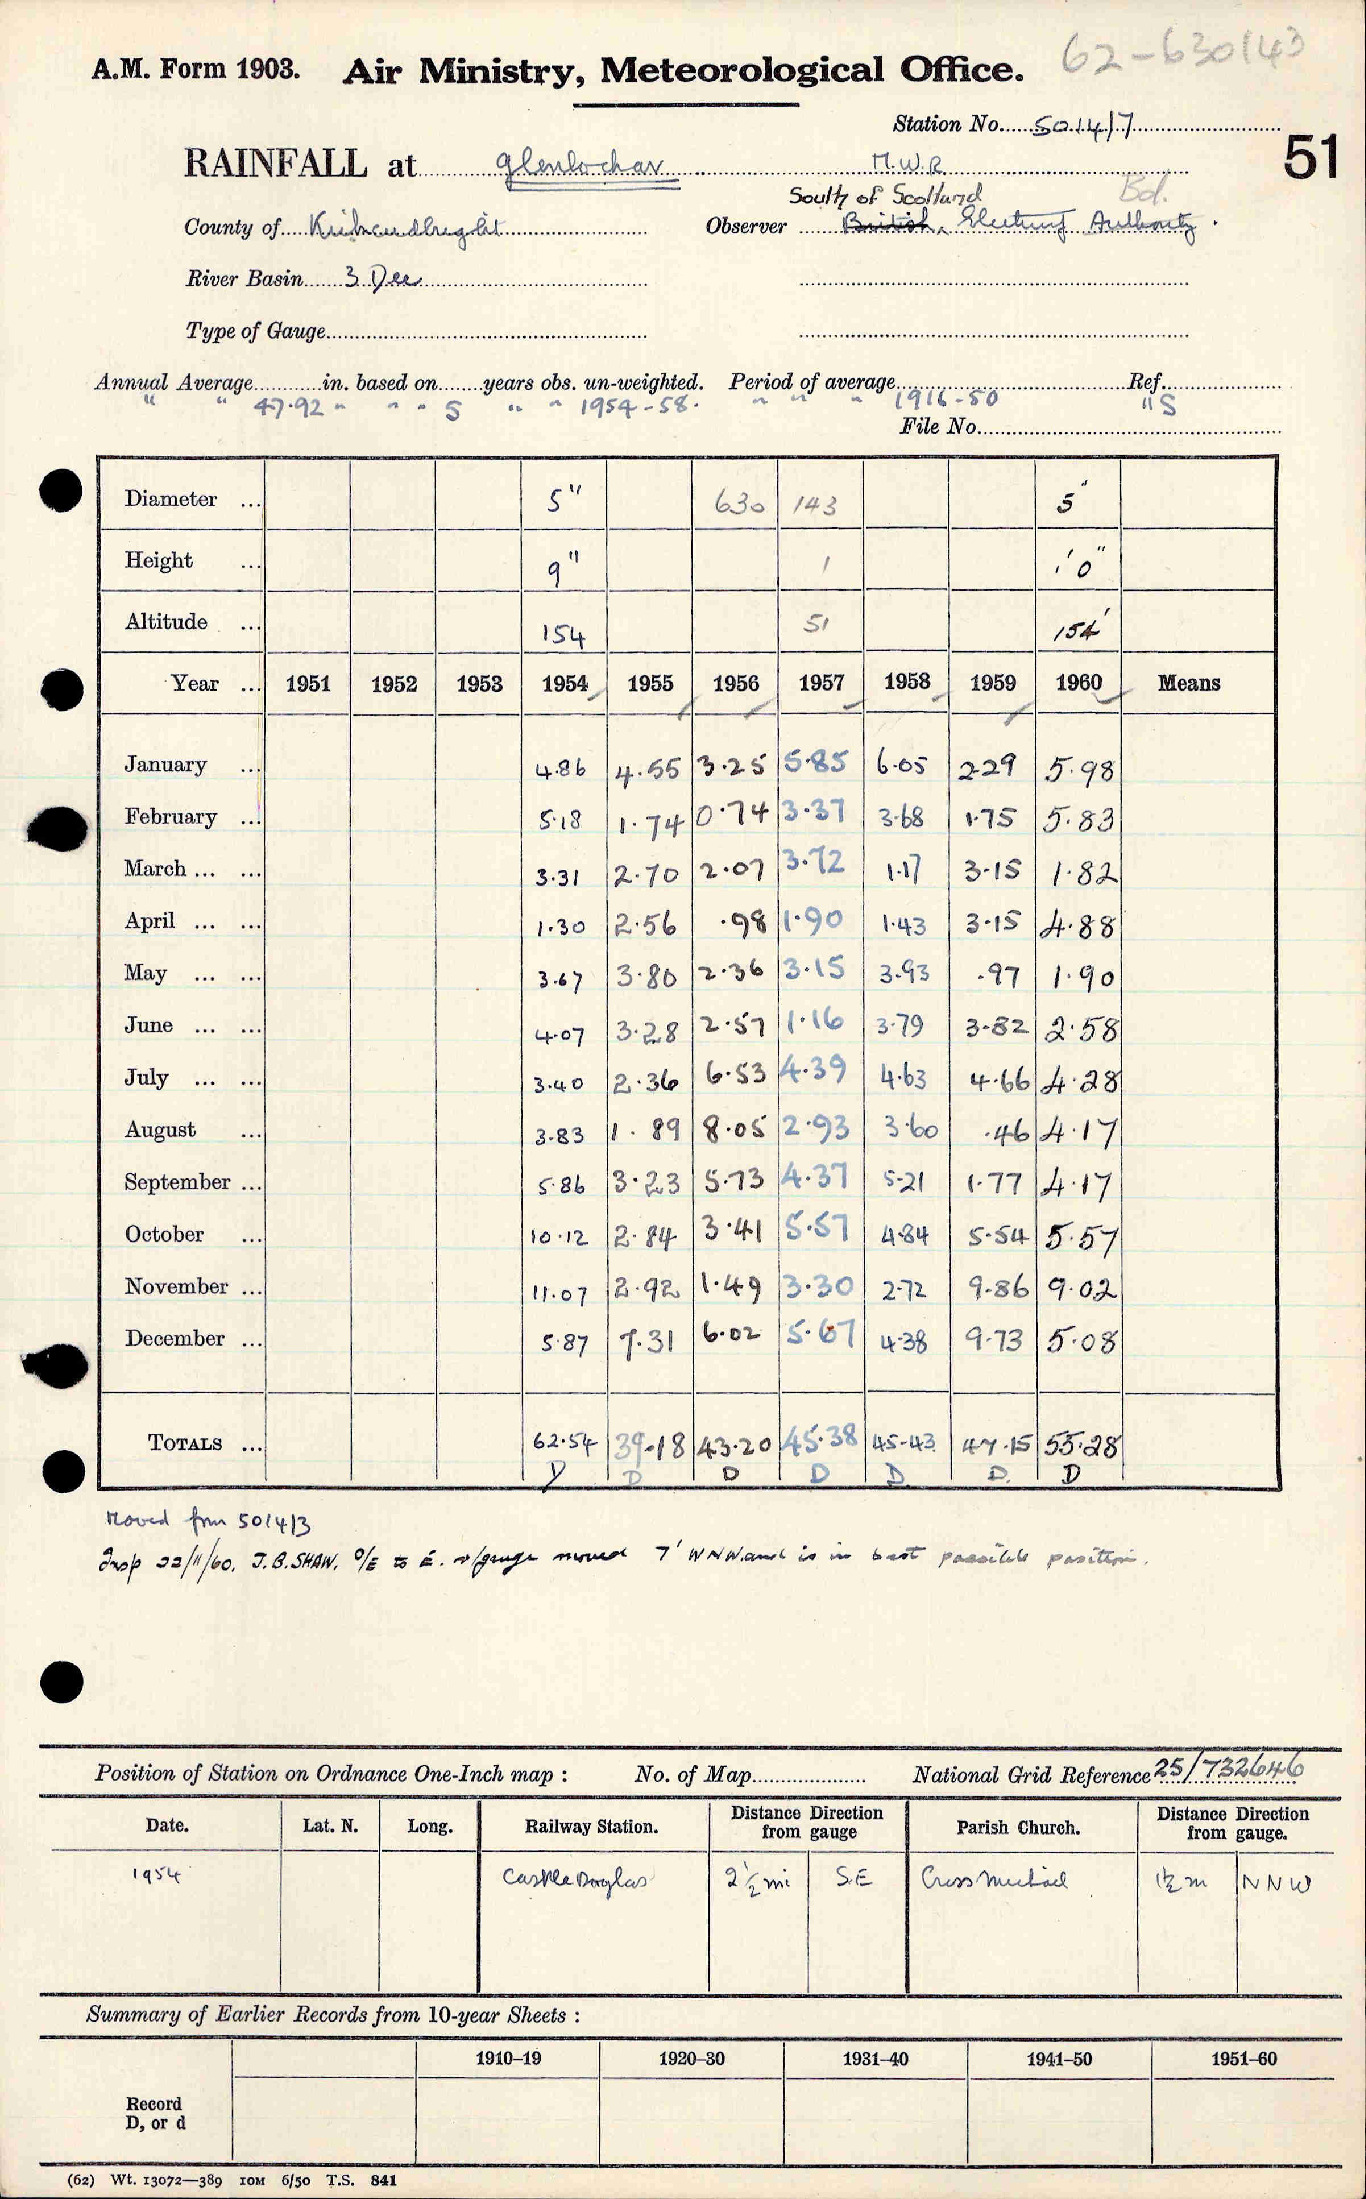 62-630143
A.M. Form 1903. Air Ministry, Meteorological Office.
Station No. 5014/7
51
RAINFALL at Glenlochar M.W.R
South of Scotland Bd.
County of Kirkcudbright Observer British Electricity Authority.
River Basin 3 Dee
Type of Gauge
Annual Average in. based on years obs. un-weighted. Period of average Ref.
" " 47.92 " " " 5 " " 1954-58. " " " 1916-50 "S
File No.
Diameter ... 5" 630 143 5"
Height ... 9" 1 1'0"
Altitude ... 154 51 154'
Year ... 1951 1952 1953 1954 1955 1956 1957 1958 1959 1960 Means
January ... 4.86 4.55 3.25 5.85 6.05 2.29 5.98
February ... 5.18 1.74 0.74 3.37 3.68 1.75 5.83
March ... ... 3.31 2.70 2.07 3.72 1.17 3.15 1.82
April ... ... 1.30 2.56 .98 1.90 1.43 3.15 4.88
May ... ... 3.67 3.80 2.36 3.15 3.93 .97 1.90
June ... ... 4.07 3.28 2.57 1.16 3.79 3.82 2.58
July ... ... 3.40 2.36 6.53 4.39 4.63 4.66 4.28
August ... 3.83 1.89 8.05 2.93 3.60 .46 4.17
September ... 5.86 3.23 5.73 4.37 5.21 1.77 4.17
October ... 10.12 2.84 3.41 5.57 4.84 5.54 5.57
November ... 11.07 2.92 1.49 3.30 2.72 9.86 9.02
December ... 5.87 7.31 6.02 5.67 4.38 9.73 5.08
TOTALS ... 62.54 39.18 43.20 45.38 45.43 47.15 55.28
D D D D D. D. D
Moved from 5014/3
Insp 22/11/60. J.B. SHAW. O/E to E. r/gauge moved 7' WNW. and is in best possible position.
Position of Station on Ordnance One-Inch map : No. of Map National Grid Reference 25/732646
Date. Lat. N. Long. Railway Station. Distance Direction from gauge Parish Church. Distance Direction from gauge.
1954 Castle Douglas 2½ mi S.E Crossmichael 1½ m NNW
Summary of Earlier Records from 10-year Sheets :
1910–19 1920–30 1931–40 1941–50 1951–60
Record
D, or d
(62) Wt. 13072—389 10M 6/50 T.S. 841